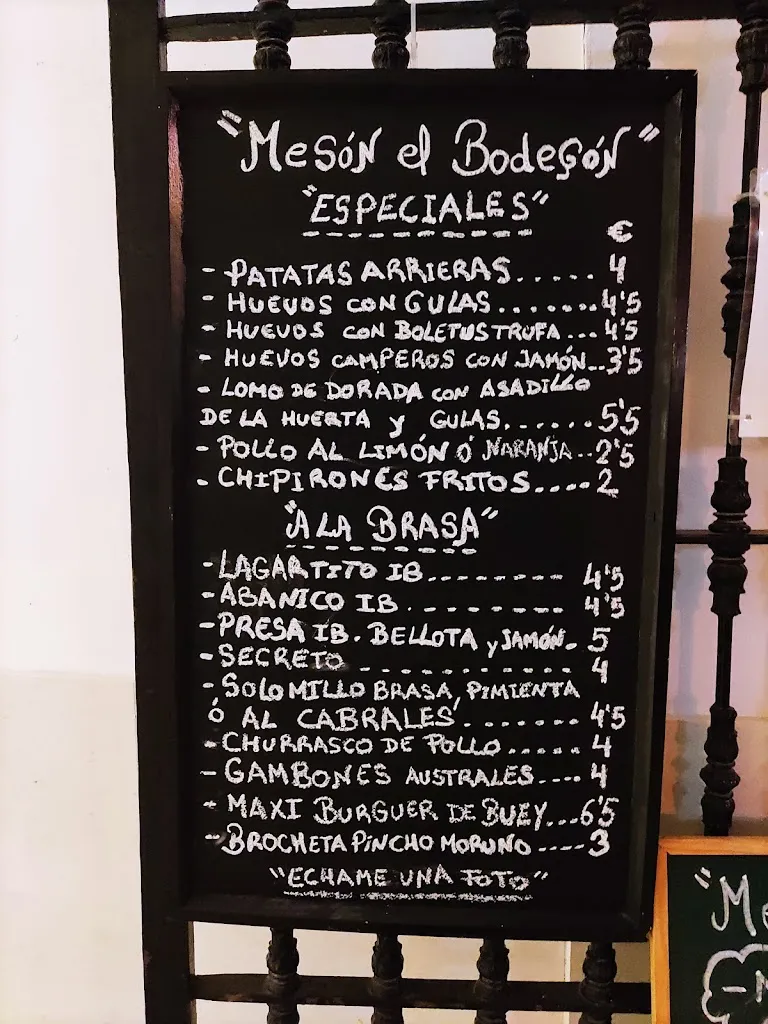 "Mesón el Bodegón"
"ESPECIALES"
€
- PATATAS ARRIERAS..... 4
- HUEVOS CON GULAS.......4'5
- HUEVOS CON BOLETUS TRUFA...4'5
- HUEVOS CAMPEROS CON JAMÓN..3'5
- LOMO DE DORADA CON ASADILLO
DE LA HUERTA y GULAS......5'5
- POLLO AL LIMÓN Ó NARANJA..2'5
- CHIPIRONES FRITOS....2
"A LA BRASA"
- LAGARTITO IB......... 4'5
- ABANICO IB......... 4'5
- PRESA IB. BELLOTA y JAMÓN. 5
- SECRETO ............ 4
- SOLOMILLO BRASA, PIMIENTA
Ó AL CABRALES........ 4'5
- CHURRASCO DE POLLO..... 4
- GAMBONES AUSTRALES.... 4
- MAXI BURGUER DE BUEY...6'5
- BROCHETA PINCHO MORUNO ....3
"ECHAME UNA FOTO"